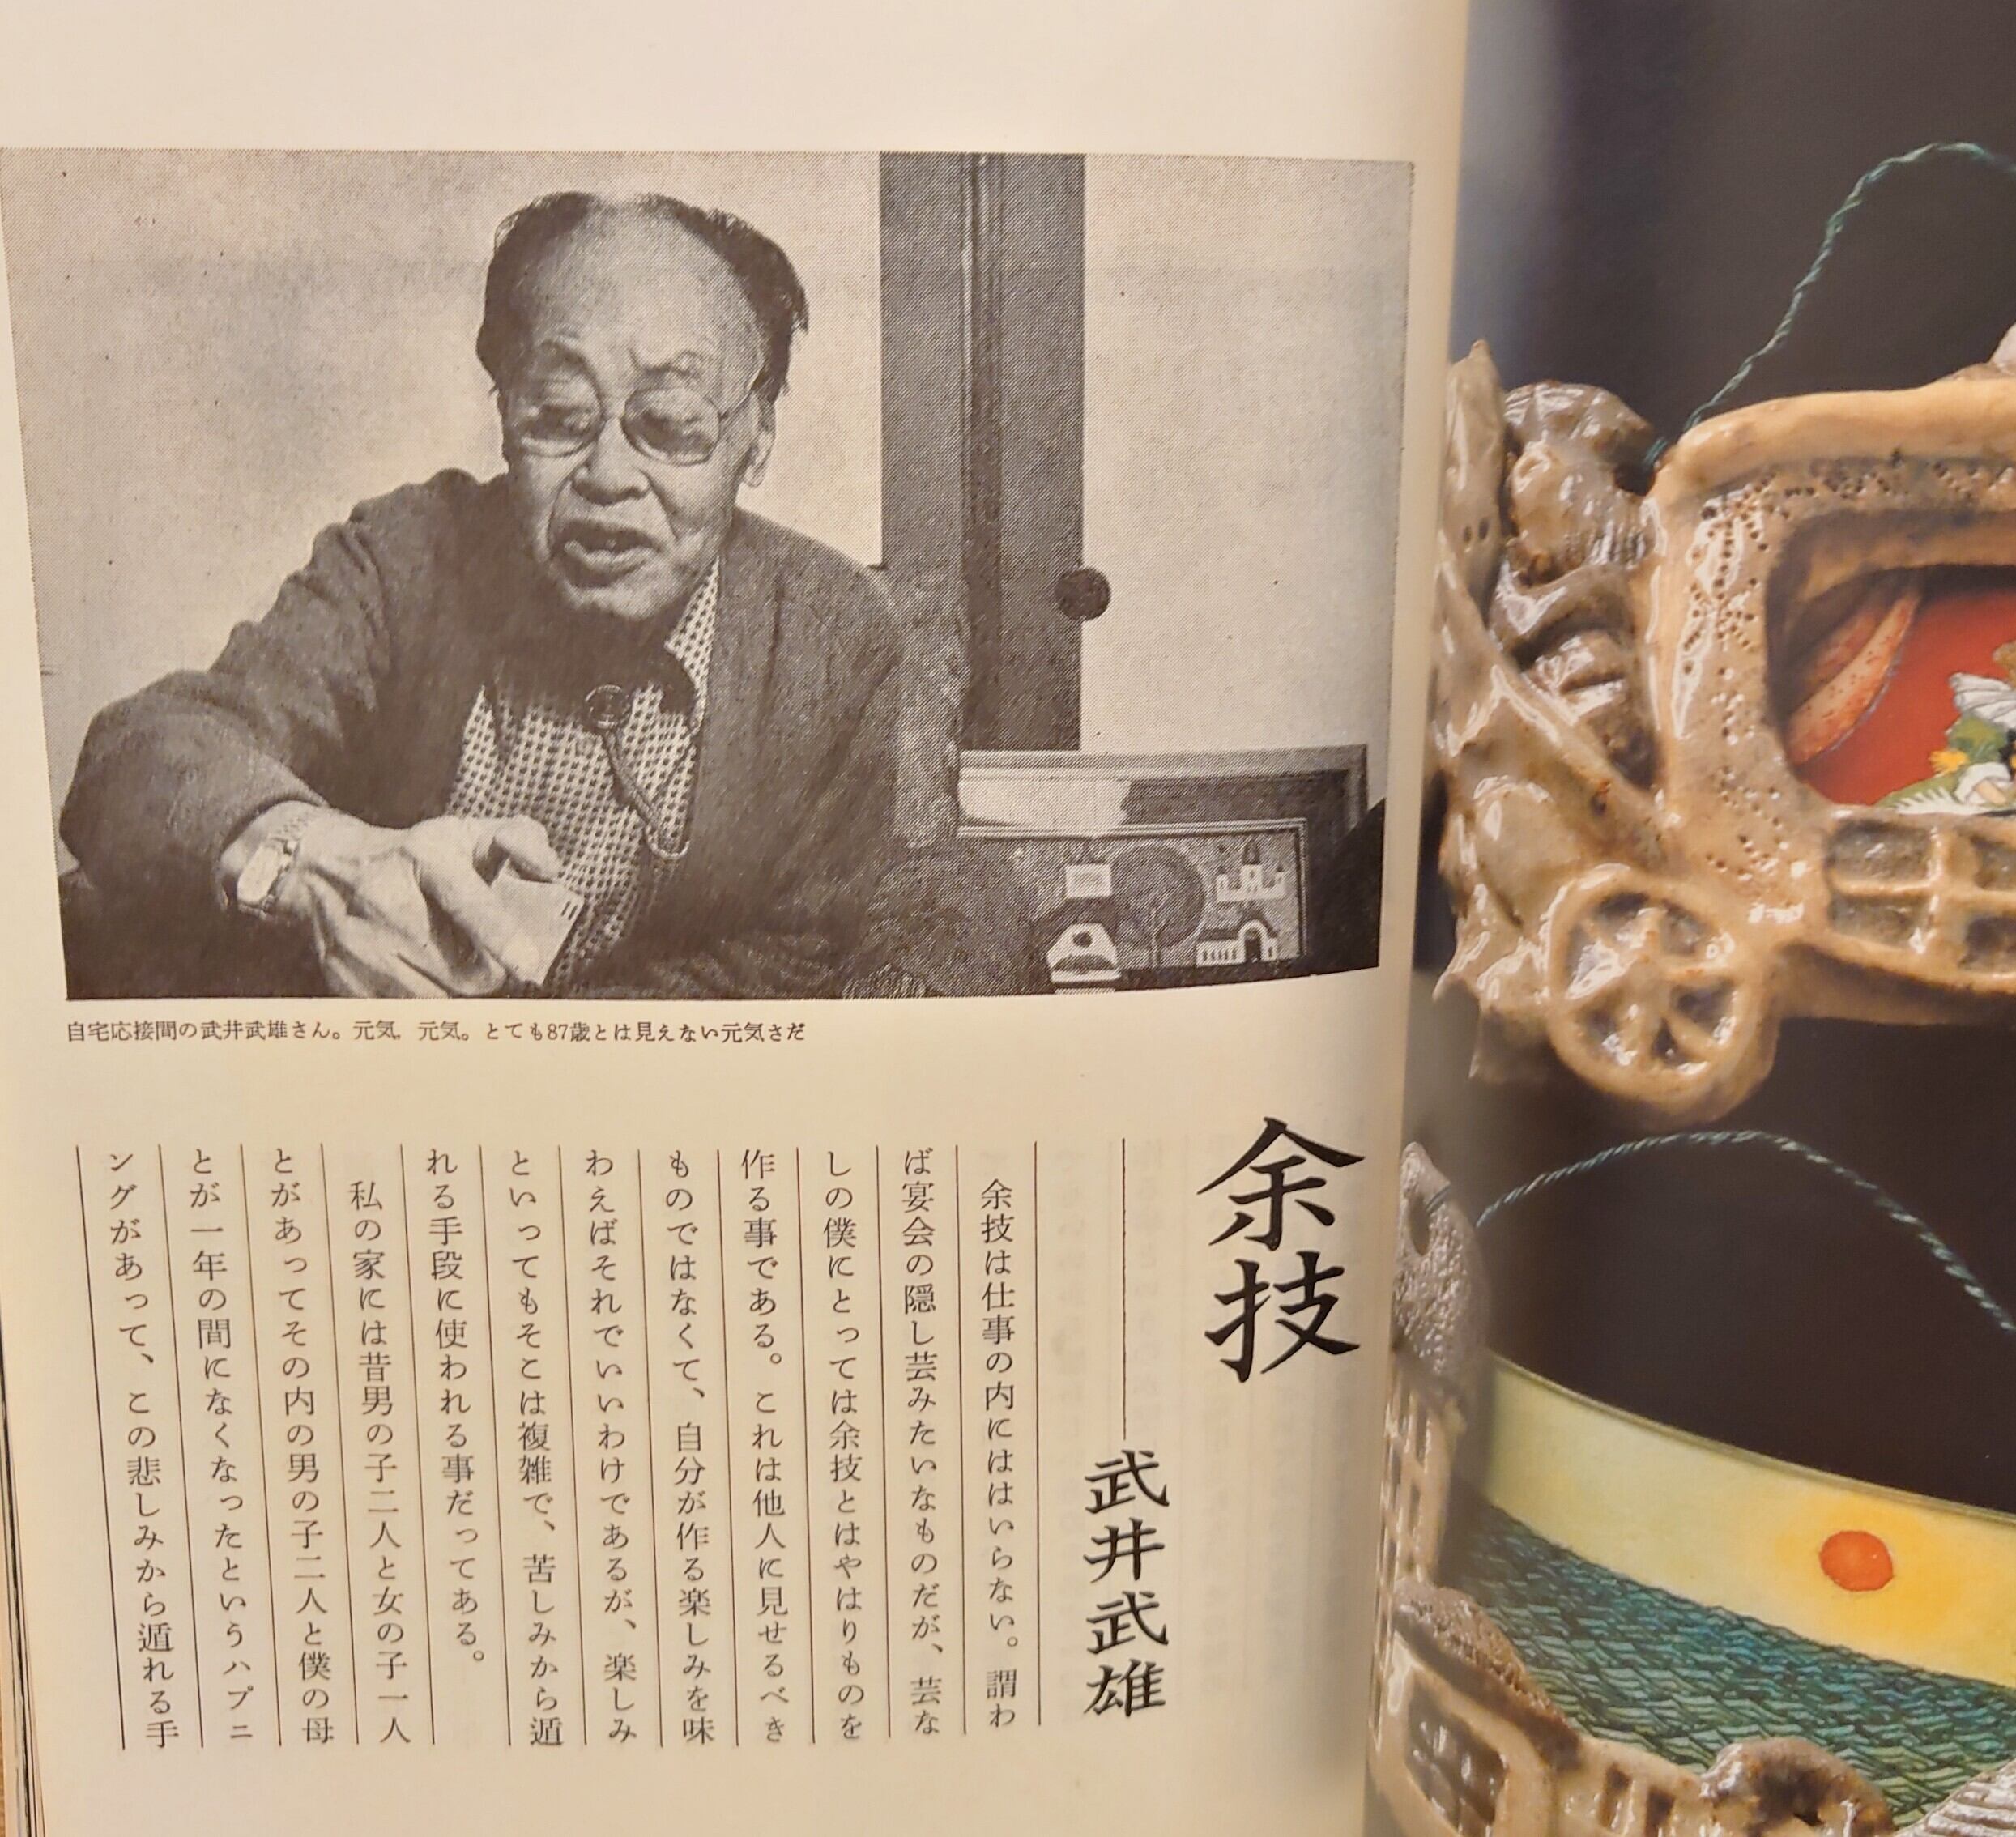 自宅応接間の武井武雄さん。元気、元気。とても87歳とは見えない元気さだ
余技
武井武雄
余技は仕事の内にははいらない。謂わ
ば宴会の隠し芸みたいなものだが、芸な
しの僕にとっては余技とはやはりものを
作る事である。これは他人に見せるべき
ものではなくて、自分が作る楽しみを味
わえばそれでいいわけであるが、楽しみ
といってもそこは複雑で、苦しみから遁
れる手段に使われる事だってある。
私の家には昔男の子二人と女の子一人
とがあってその内の男の子二人と僕の母
とが一年の間になくなったというハプニ
ングがあって、この悲しみから遁れる手